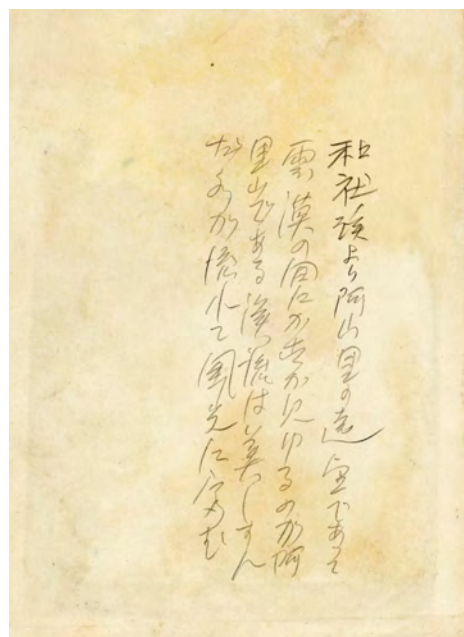 和社渓より阿山里の遠望であて
雲漠の間にかすかに見ゆるのが阿
里山である渓流は美しすん
だ水が流れて風光に富む